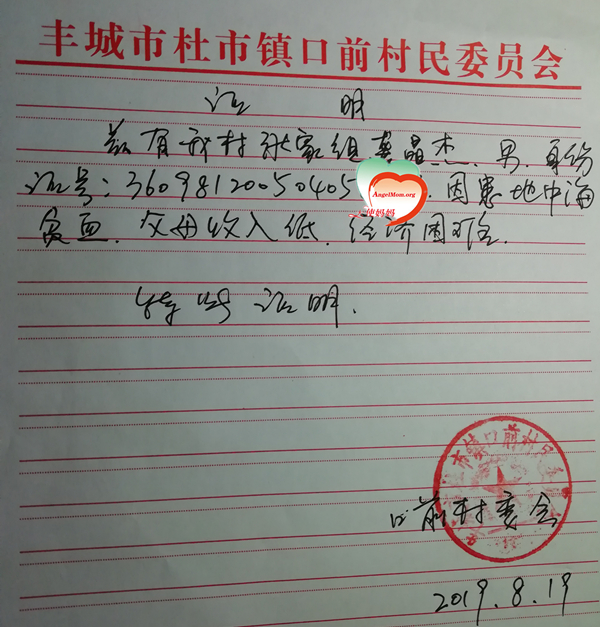 丰城市杜市镇口前村民委员会
证 明
兹有我村张家组晶杰、男、身份
证号:36098120050405 因患地中海
AngelMom.org
天使妈妈
贫血、父母收入低、经济困难.
特此证明.
市镇口前村
口前村委会
2019.8.19